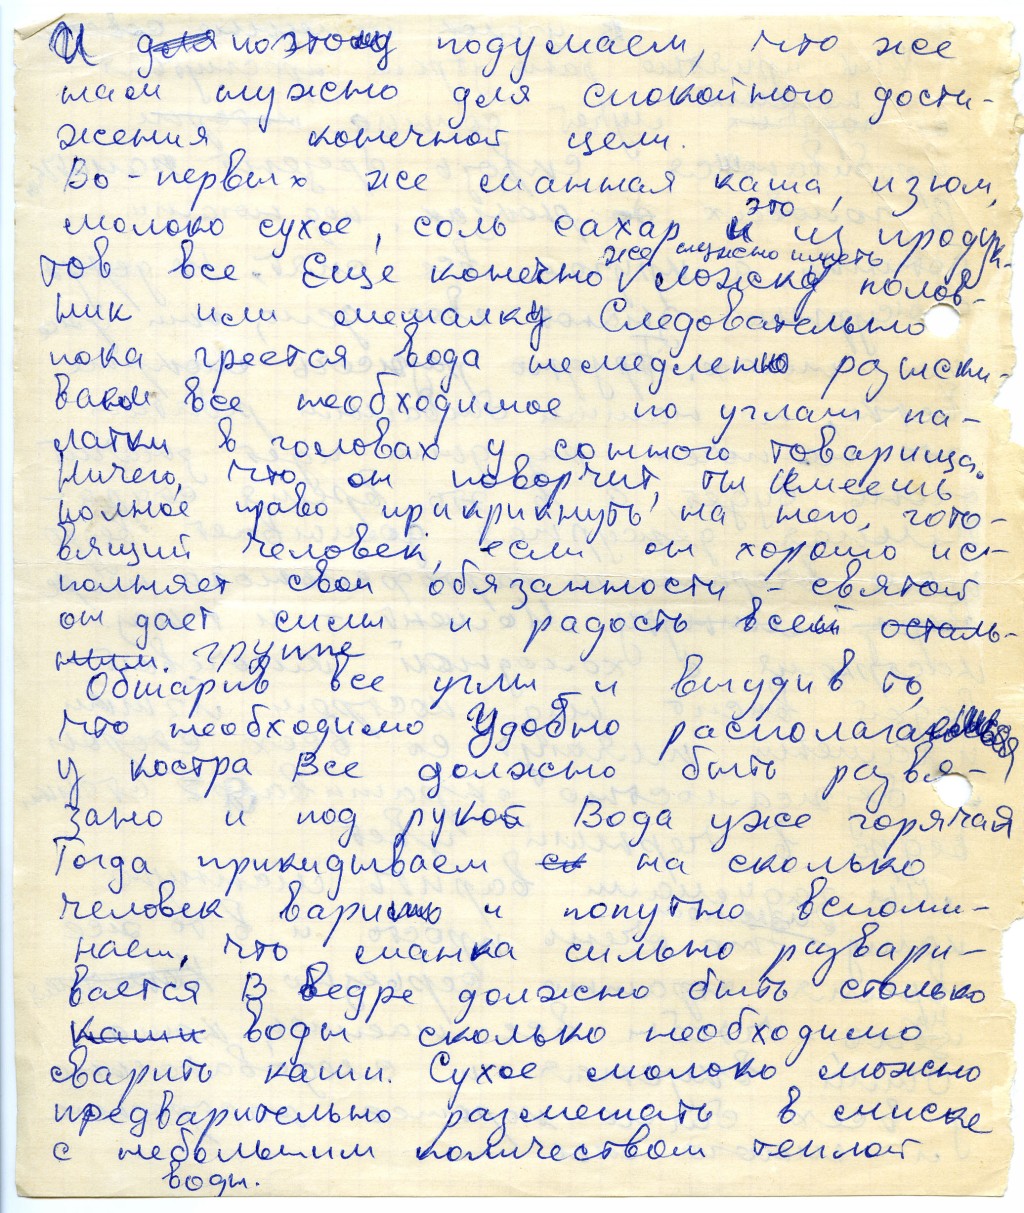 И для поэтому подумаем, что же
нам нужно для спокойного дости-
жения конечной цели.
Во-первых же манная каша, изюм,
молоко сухое, соль сахар и из продук-
это
тов все. Еще конечно ложку полов-
же нужно иметь
ник или мешалку Следовательно
пока греется вода немедленно разыски-
ваем все необходимое по углам па-
латки, в головах у сонного товарища.
Ничего, что он поворчит, ты имеешь
полное право прикрикнуть на него, гото-
вящий человек, если он хорошо ис-
полняет свои обязанности - святой
он дает силы и радость всей осталь-
ным. группе
Обшарив все углы и выудив то,
что необходимо Удобно располагаемся
у костра Все должно быть развя-
зано и под рукой Вода уже горячая
Тогда прикидываем ск на сколько
человек варим и попутно вспоми-
наем, что манка сильно развари-
вается В ведре должно быть столько
каши воды сколько необходимо
сварить каши. Сухое молоко можно
предварительно размешать в миске
с небольшим количеством теплой
воды.